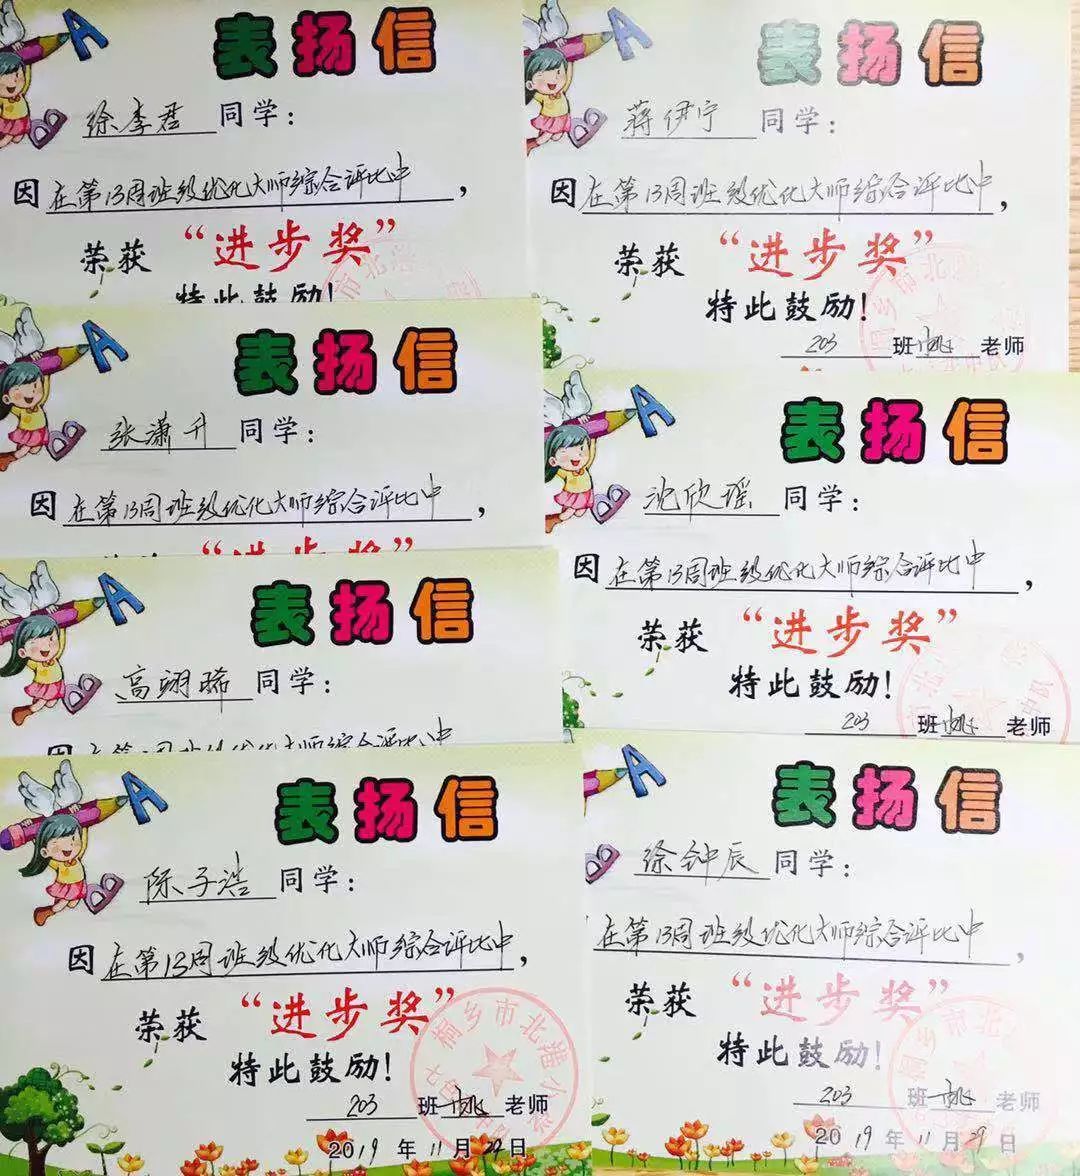 表扬信
徐李君 同学：
因 在第13周班级优化大师综合评比中，
荣获 “进步奖”
特此鼓励！
表扬信
蒋伊宁 同学：
因 在第13周班级优化大师综合评比中，
荣获 “进步奖”
特此鼓励！
203 班 姚 老师
表扬信
张潇升 同学：
因 在第13周班级优化大师综合评比中，
荣获 “进步奖”
表扬信
沈欣瑶 同学：
因 在第13周班级优化大师综合评比中，
荣获 “进步奖”
特此鼓励！
203 班 姚 老师
表扬信
高翊晞 同学：
因 在第13周班级优化大师综合评比中
表扬信
陈子浩 同学：
因 在第13周班级优化大师综合评比中，
荣获 “进步奖”
特此鼓励！
203 班 姚 老师
2019 年 11 月 29 日
桐乡市北港小学
表扬信
徐钟辰 同学：
在第13周班级优化大师综合评比中，
荣获 “进步奖”
特此鼓励！
203 班 姚 老师
2019 年 11 月 29 日